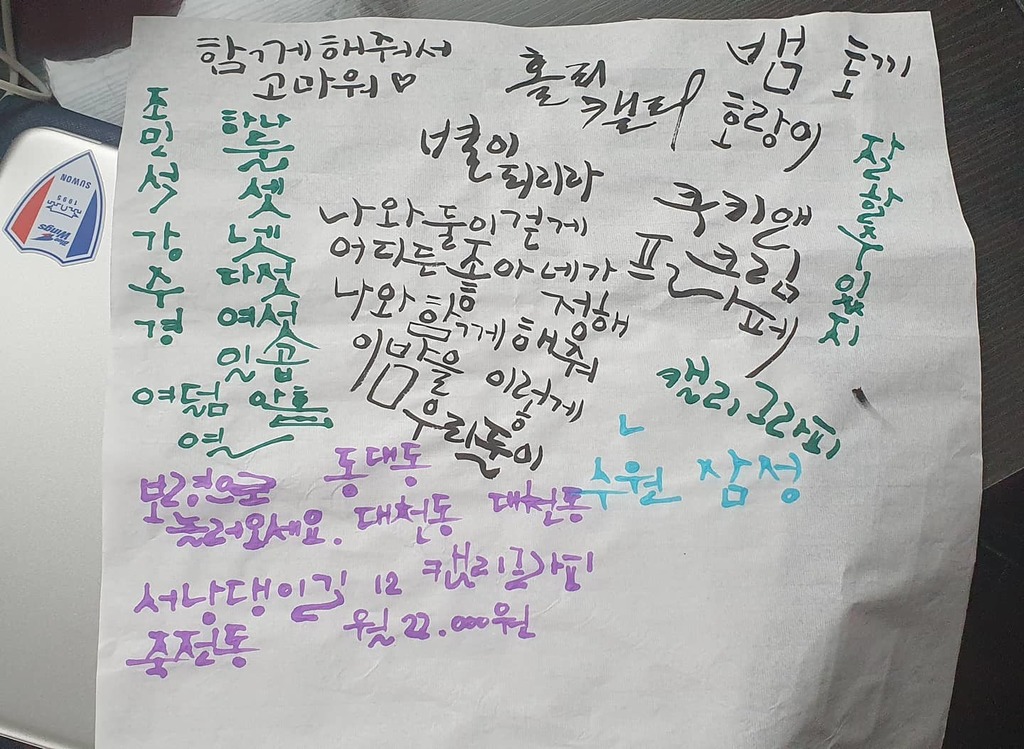 함께해줘서
고마워♡
홀리
캘리
뱀 토끼
호랑이
조민석
강주경
하나
둘
셋
넷
다섯
여섯
일곱
여덟 아홉
열
별이
되리라
나와 둘이 걷게
어디든 좋아 네가
나와 함께 해줘
이 밤을 이렇게
우리 둘이
쿠키앤
크림
프라페
캘리그라피
수원 삼정
보령으로
놀러오세요.
동대동
대천동 대천동
서낭댕이길 12
죽전동
캘리그라피
월 22.000원
SUWON
1995
Wings